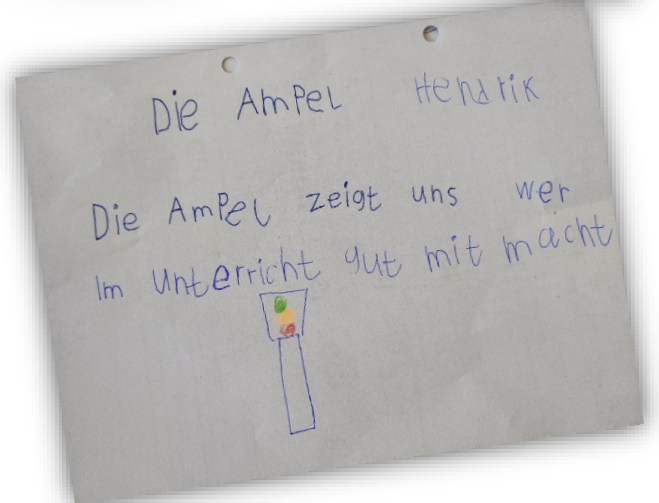 Die Ampel Hendrik
Die Ampel zeigt uns wer
Im unterricht gut mit macht